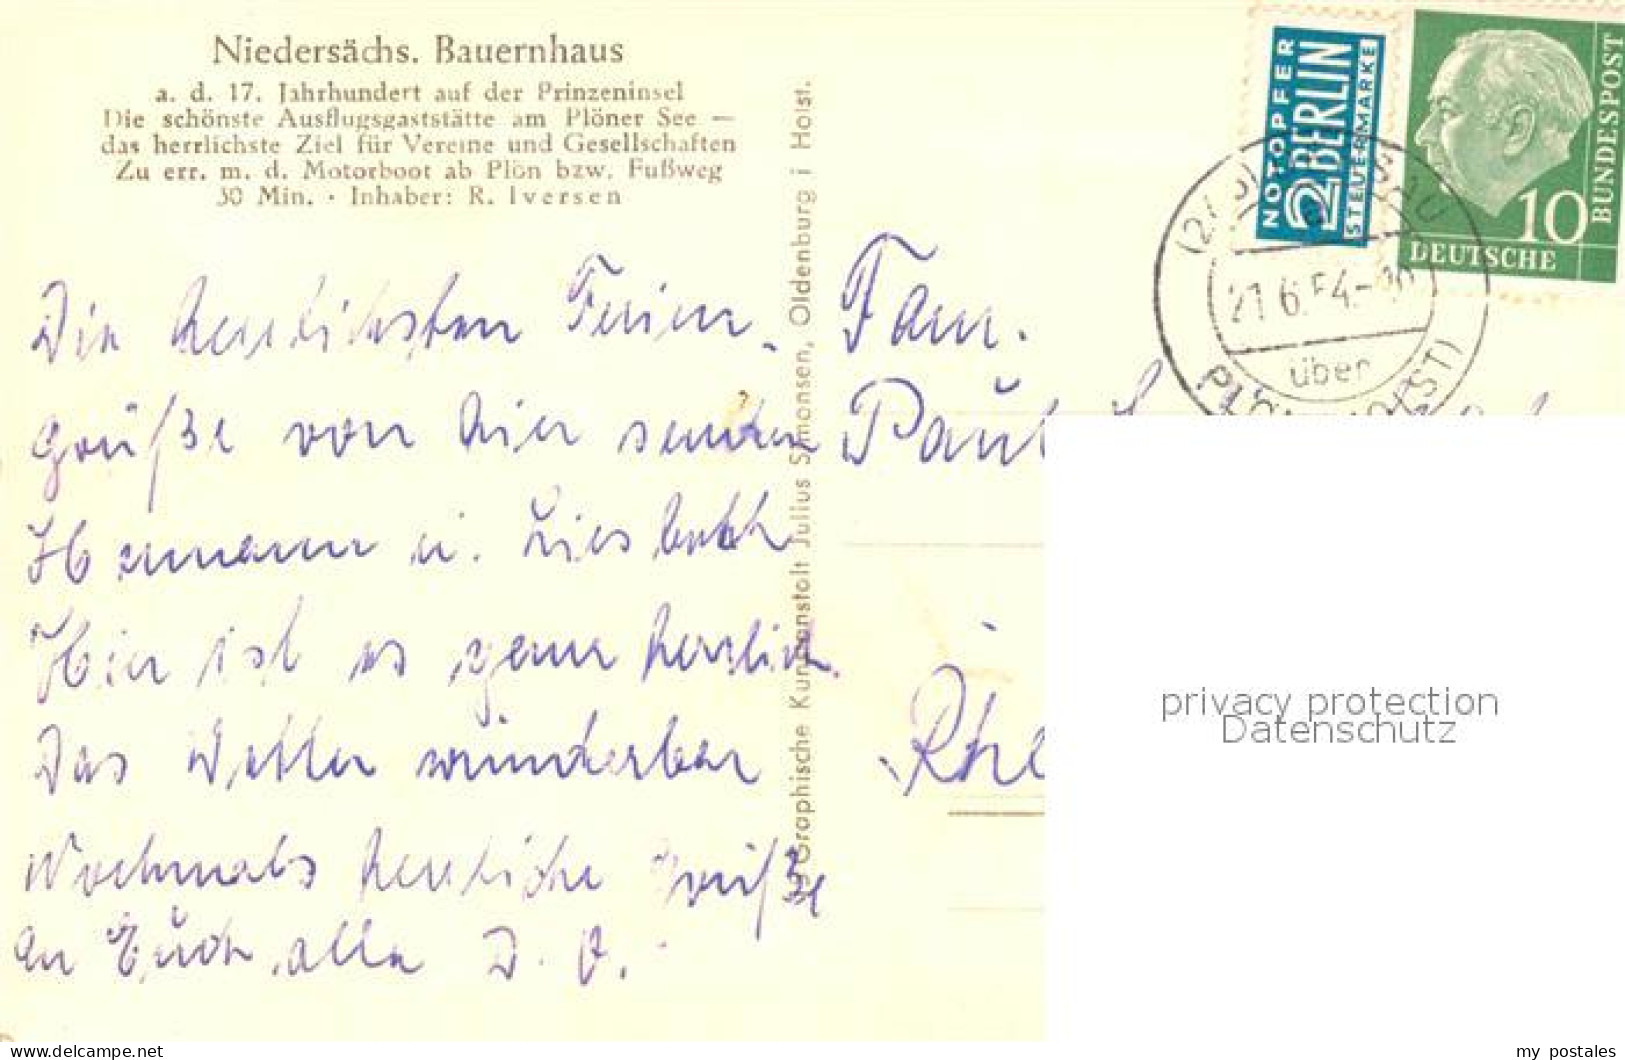 Niedersächs. Bauernhaus
a. d. 17. Jahrhundert auf der Prinzeninsel
Die schönste Ausflugsgaststätte am Plöner See —
das herrlichste Ziel für Vereine und Gesellschaften
Zu err. m. d. Motorboot ab Plön bzw. Fußweg
30 Min. · Inhaber: R. Iversen
Die herrlichsten Ferien-
grüße von hier senden
Hermann u. Liesbeth
Hier ist es ganz herrlich.
Das Wetter wunderbar
Nochmals herzliche Grüße
an Euch alle D. O.
Graphische Kunstanstalt Julius Simonsen, Oldenburg i Holst.
NOTOPFER
2 BERLIN
STEUERMARKE
10
DEUTSCHE
BUNDESPOST
21.6.54
über
PLÖN (HOLST)
Fam.
Paul
Rhe
privacy protection
Datenschutz
www.delcampe.net
my_postales